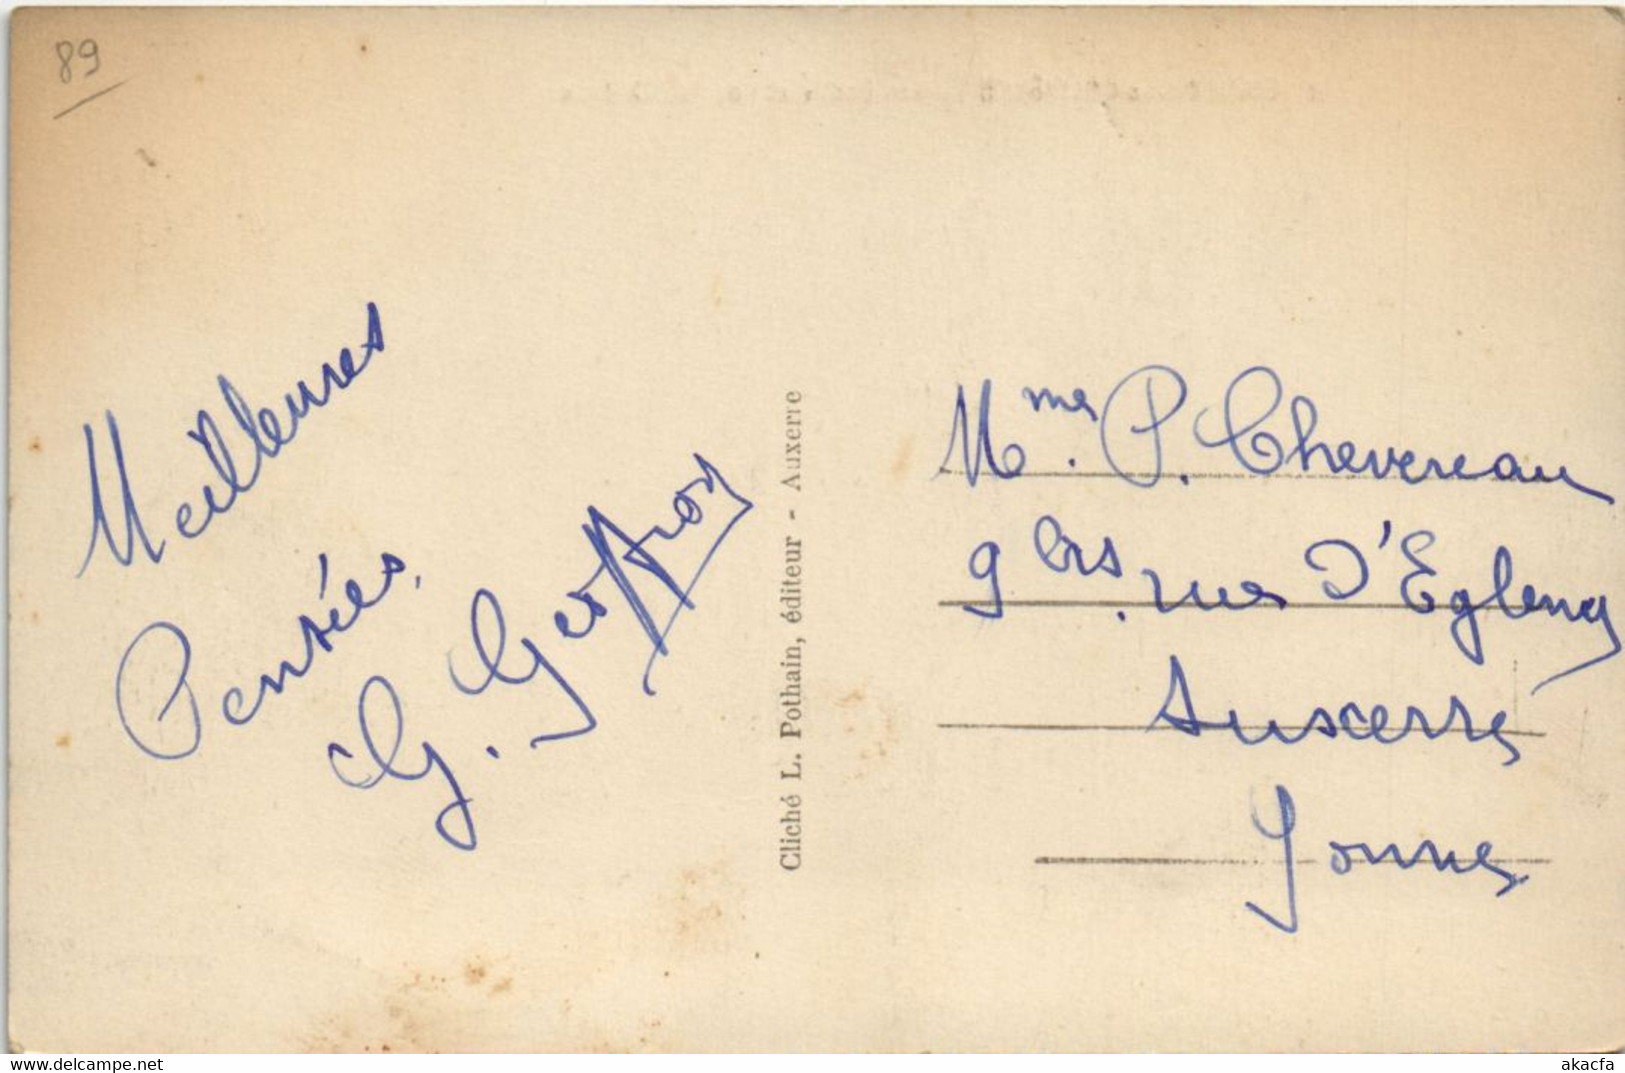 89
Meilleures
Pensées.
G. Geoffroy
Cliché L. Pothain, éditeur - Auxerre
Mme. P. Chevereau
9 bis. rue d'Egleny
Auxerre
Yonne
akacfa
delcampe.net